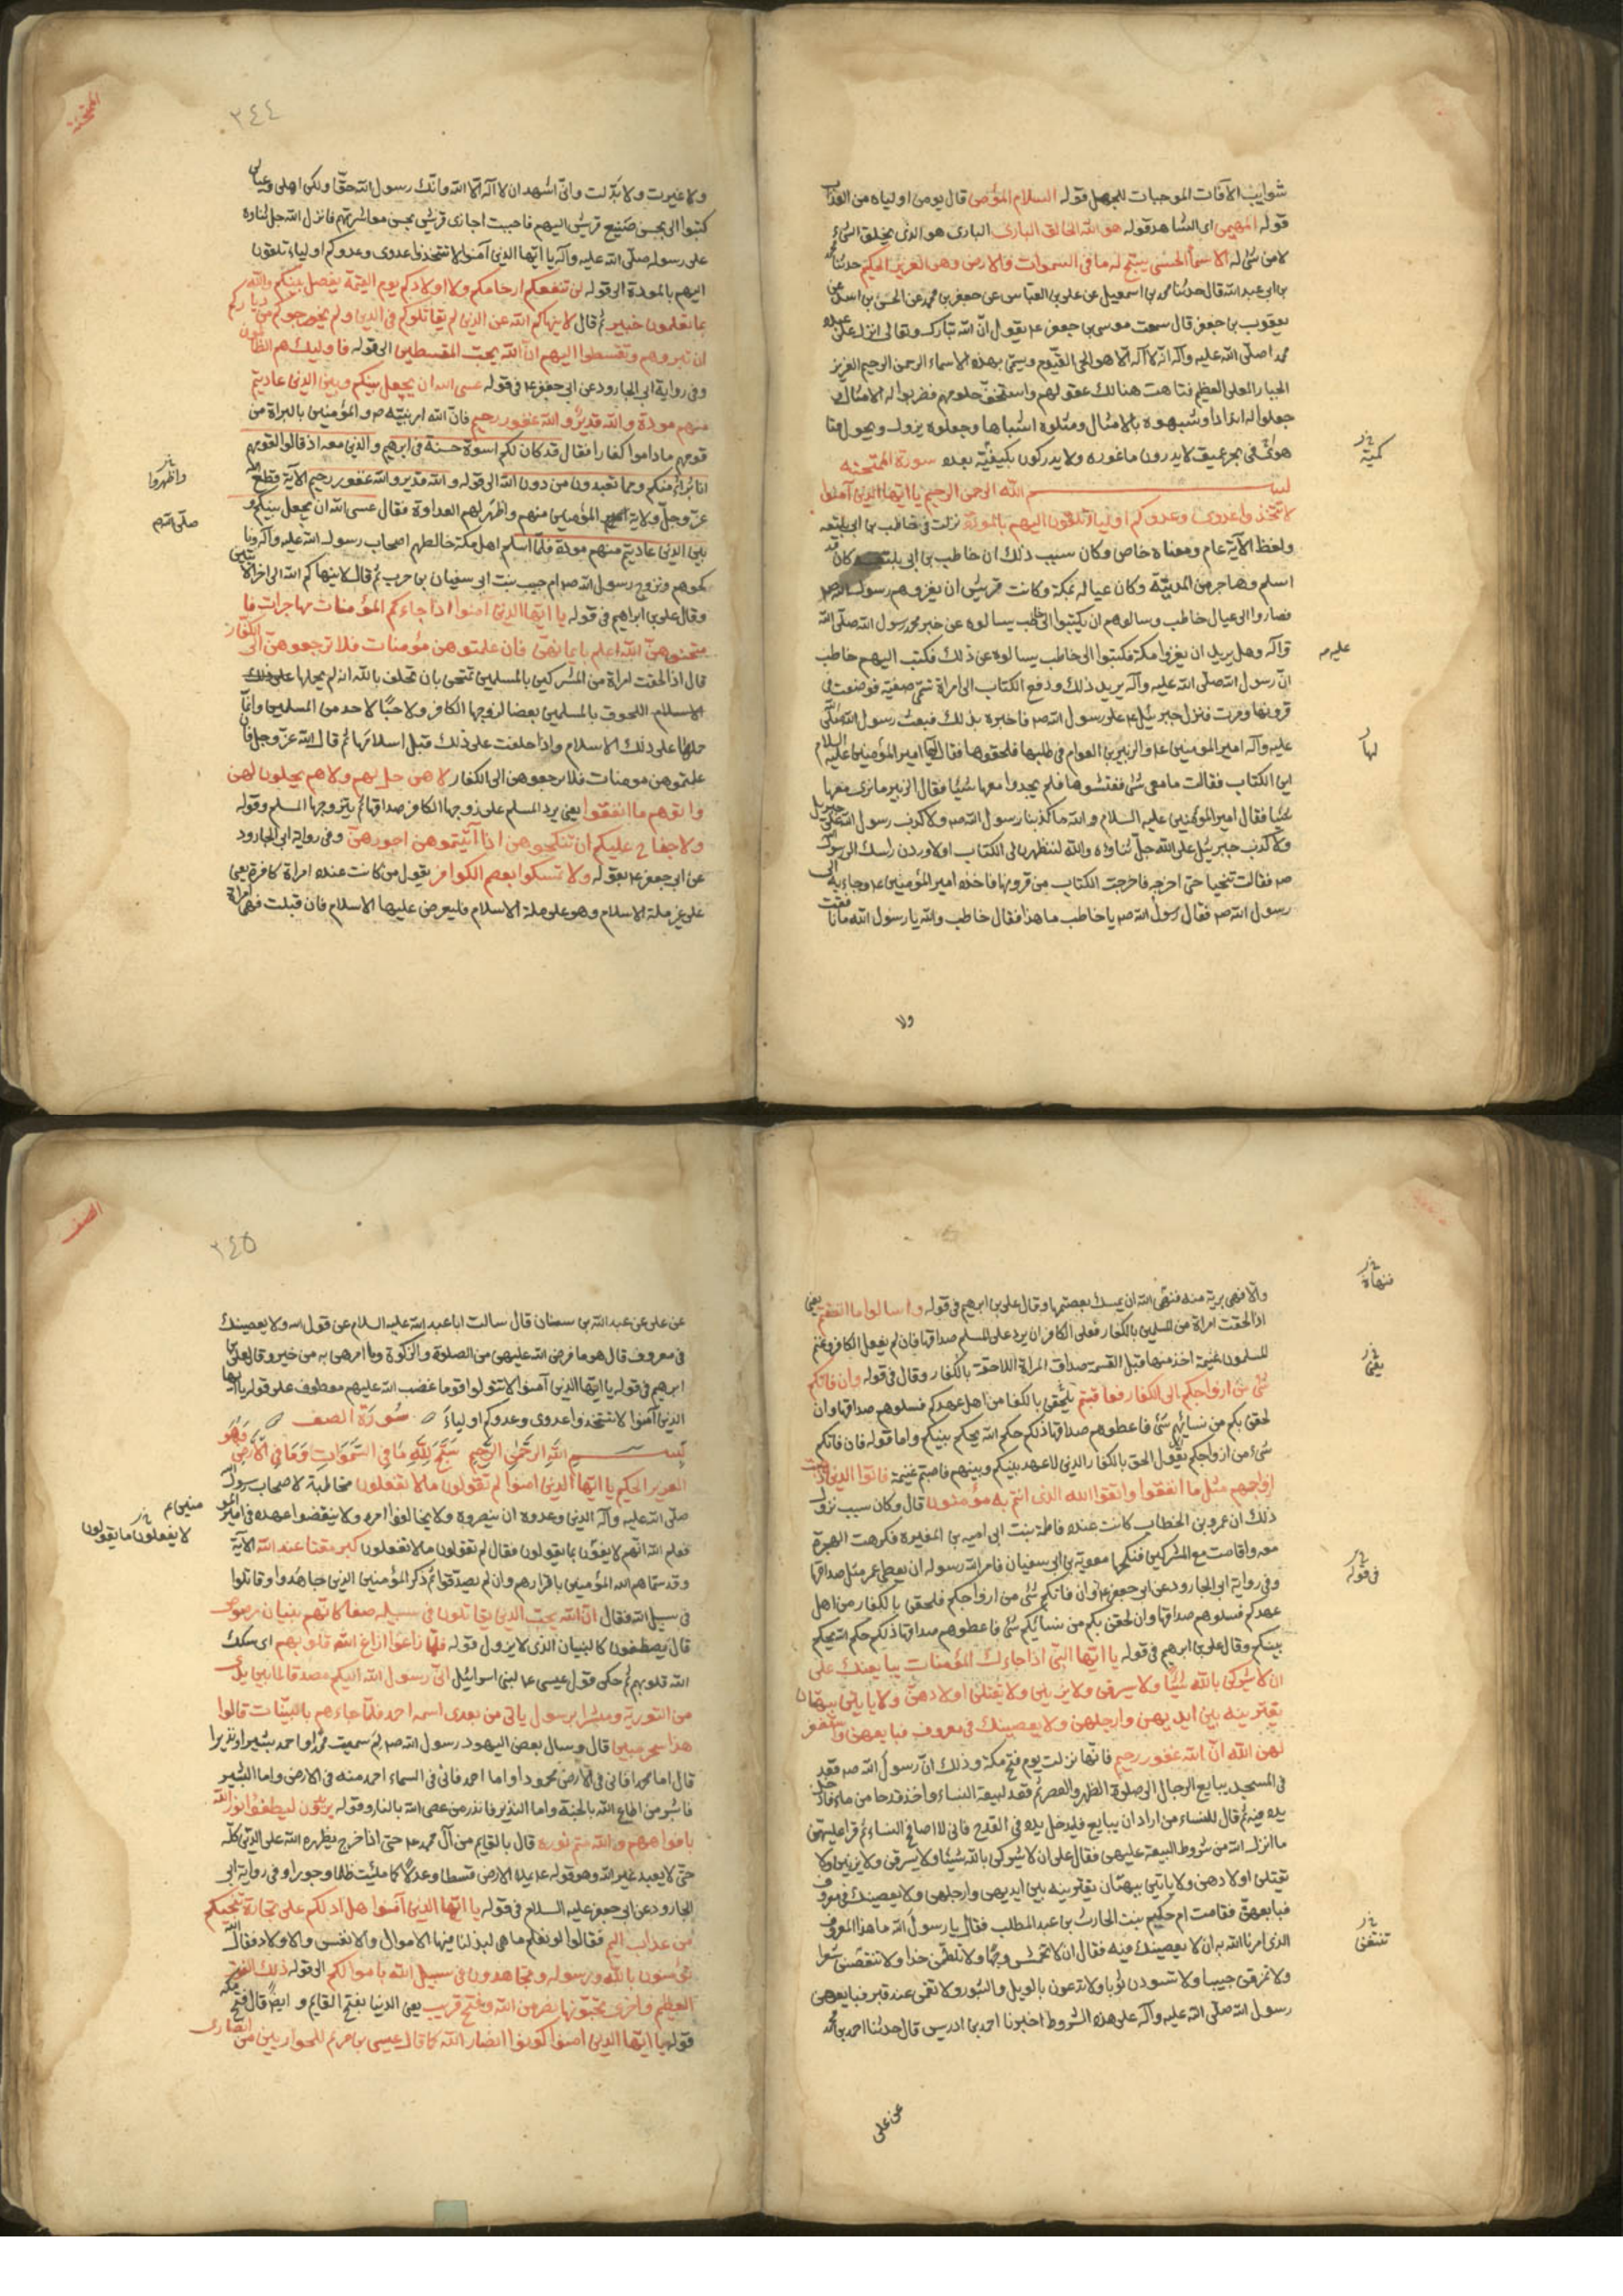 شوايب الآفات الموجبات للجهل قوله السلام المؤمن قال يومن اولياه من العذاب
قوله المهيمن اى الشاهد قوله هو الله الخالق البارئ البارى هو الذى يخلق الشئ
لا من شئ له الاسمآ الحسنى يسبح له ما فى السموات والارض وهو العزيز الحكيم حدثنا محمد
بن ابى عبد الله قال حدثنا محمد بن اسمعيل عن على بن العباس عن جعفر بن محمد عن الحسن بن اسد عن
يعقوب بن جعفر قال سمعت موسى بن جعفر ع يقول ان الله تبارك وتعالى انزل على عبده
محمد صلى الله عليه وآله انه لا آله الا هو الحى القيوم ويسمى بهذه الاسماء الرحمن الرحيم العزيز
الجبار العلى العظيم فتاهت هنالك عقولهم واستخف حلومهم فضربوا له الامثال و
جعلوا له اندادا وشبهوه بالامثال ومثلوه اشباها وجعلوه يزول ويحول فتا
هوا فى بحر عميق لا يدرون ما غوره ولا يدركون بكيفية بعده سورة الممتحنه
كمية
بسم الله الرحمن الرحيم يا ايها الذين آمنوا
لا تتخذوا عدوى وعدوكم اولياء تلقون اليهم بالمودة نزلت فى خاطب بن ابى بلتعه
ولفظ الآية عام ومعناه خاص وكان سبب ذلك ان خاطب بن ابى بلتعه كان قد
اسلم وهاجر من المدينة وكان عياله بمكة وكانت قريش ان يغزوهم رسول الله ص
فصاروا الى عيال خاطب وسالوهم ان يكتبوا الى خاطب يسالوه عن خبر محمد رسول الله صلى الله
وآله وهل يريد ان يغزوا مكة فكتبوا الى خاطب يسالوه عن ذلك فكتب اليهم خاطب
عليه
ان رسول الله صلى الله عليه وآله يريد ذلك ودفع الكتاب الى امراة تسمى صفية فوضعته فى
قرونها ومرت فنزل جبرئيل ع على رسول الله ص فاخبره بذلك فبعث رسول الله صلى
عليه وآله امير المؤمنين ع والزبير بن العوام فى طلبها فلحقوها فقال لها امير المؤمنين عليه السلام
لها
اين الكتاب فقالت ما معى شئ ففتشوها فلم يجدوا معها شيئا فقال الزبير ما نرى معها
شيئا فقال امير المؤمنين عليه السلام والله ما كذبنا رسول الله ص ولا كذب رسول الله على جبرئيل
ولا كذب جبرئيل على الله جل ثناؤه والله لتظهرن لى الكتاب او لاوردن راسك الى رسول الله
ص فقالت تنحيا حتى اخرجه فاخرجت الكتاب من قرونها فاخذه امير المؤمنين ع وجاء به الى
رسول الله ص فقال رسول الله ص يا خاطب ما هذا فقال خاطب والله يا رسول الله ما نافقت
ولا
الممتحنة
٣٤٤
ولا غيرت ولا بدلت وانى اشهد ان لا آله الا الله وانك رسول الله حقا ولكن اهلى وعيالى
كتبوا الى بحسن صنيع قريش اليهم فاحببت اجازى قريش بحسن معاشرتهم فانزل الله جل ثناوه
على رسوله صلى الله عليه وآله يا ايها الذين آمنوا لا تتخذوا عدوى وعدوكم اولياء تلقون
اليهم بالمودة الى قوله لن تنفعكم ارحامكم ولا اولادكم يوم القيمة يفصل بينكم والله
بما تعملون خبير ثم قال لا ينهاكم الله عن الذين لم يقاتلوكم فى الدين ولم يخرجوكم من دياركم
ان تبروهم وتقسطوا اليهم ان الله يحب المقسطين الى قوله فاوليك هم الظالمون
وفى رواية ابى الجارود عن ابى جعفر ع فى قوله عسى الله ان يجعل بينكم وبين الذين عاديتم
منهم مودة والله قدير والله غفور رحيم فان الله امر نبيه ص والمؤمنين بالبراة من
قومهم ماداموا كفارا فقال قد كان لكم اسوة حسنة فى ابرهيم والذين معه اذ قالوا لقومهم
انا برآؤ منكم ومما تعبدون من دون الله الى قوله والله قدير والله غفور رحيم الآية قطع الله
عز وجل ولاية المؤمنين منهم واظهر لهم العداوة فقال عسى الله ان يجعل بينكم و
واظهروا
بين الذين عاديتم منهم مودة فلما اسلم اهل مكة خالطهم اصحاب رسول الله عليه وآله ونا
صلى الله
كحوهم وتزوج رسول الله ص ام حبيب بنت ابى سفيان بن حرب ثم قال لا ينهاكم الله الى اخر الآيتين
وقال على بن ابراهيم فى قوله يا ايها الذين امنوا اذا جاءكم المؤمنات مهاجرات فا
متحنوهن الله اعلم بايمانهن فان علمتوهن مؤمنات فلا ترجعوهن الى الكفار
قال اذا لحقت امراة من المشركين بالمسلمين تمتحن بان تحلف بالله انه لم يحملها على ذلك
الاسلام اللحوق بالمسلمين بعضا لزوجها الكافر ولا حبا لاحد من المسلمين وانما
حملها على ذلك الاسلام واذا حلفت على ذلك قبل اسلامها ثم قال الله عز وجل فان
علمتموهن مومنات فلا ترجعوهن الى الكفار لا هن حل لهم ولا هم يحلون لهن
واتوهم ما انفقوا يعنى يرد المسلم على زوجها الكافر صداقها ثم يتزوجها المسلم وقوله
ولا جناح عليكم ان تنكحوهن اذا آتيتموهن اجورهن وفى رواية ابى الجارود
عن ابى جعفر ع بقوله ولا تمسكوا بعصم الكوافر يقول من كانت عنده امراة كافرة يعنى
على غير ملة الاسلام وهو على ملة الاسلام فليعرض عليها الاسلام فان قبلت فهى امراته
والا فهى برية منه فنهى الله ان يمسك بعصمتها وقال على بن ابرهيم فى قوله واسالوا ما انفقتم يعنى
فنهاه
اذا لحقت امراة من المسلمين بالكفار فعلى الكافر ان يرد على المسلم صداقها فان لم يفعل الكافر وغنم
المسلمون غنيمة اخذ منها قبل القسمة صداق المراة اللاحقة بالكفار وقال فى قوله وان فاتكم
يعنى
شئ من ازواجكم الى الكفار فعاقبتم يلحقن بالكفار من اهل عهدكم فسلوهم صداقها وان
لحقن بكم من نسائهم شئ فاعطوهم صداقها ذلكم حكم الله يحكم بينكم واما قوله فان فاتكم
شئ من ازواجكم يقول الحق بالكفار الذين لا عهد بينكم وبينهم فاصبتم غنيمة فاتوا الذين ذهبت
ازواجهم مثل ما انفقوا واتقوا الله الذى انتم به مؤمنون قال وكان سبب نزول
ذلك ان عمر بن الخطاب كانت عنده فاطمة بنت ابى اميه بن المغيرة فكرهت الهجرة
معه واقامت مع المشركين فنكحها معوية بن ابى سفيان فامر الله رسوله ان يعطى عمر مثل صداقها
فى قوله
وفى رواية ابى الجارود عن ابى جعفر ع وان فاتكم شئ من ازواجكم فلحقن بالكفار من اهل
عهدكم فسلوهم صداقها وان لحقن بكم من نسائكم شئ فاعطوهم صداقها ذلكم حكم الله يحكم
بينكم وقال على بن ابرهيم فى قوله يا ايها النبى اذا جاءك المؤمنات يبايعنك على
ان لا يشركن بالله شيئا ولا يسرقن ولا يزنين ولا يقتلن اولادهن ولا ياتين ببهتان
يفترينه بين ايديهن وارجلهن ولا يعصينك فى معروف فبايعهن واستغفر
لهن الله ان الله غفور رحيم فانها نزلت يوم فتح مكة وذلك ان رسول الله ص قعد
فى المسجد يبايع الرجال الى صلوة الظهر والعصر ثم قعد لبيعة النساء واخذ قدحا من ماء فادخل
يده فيه ثم قال للنساء من اراد ان يبايع فليدخل يده فى القدح فانى لا اصافح النساء ثم قرا عليهن
ما انزل الله من شروط البيعة عليهن فقال على ان لا يشركن بالله شيئا ولا يسرقن ولا يزنين ولا
يقتلن اولادهن ولا ياتين ببهتان يفترينه بين ايديهن وارجلهن ولا يعصينك فى معروف
فبايعهن فقامت ام حكيم بنت الحارث بن عبد المطلب فقال يا رسول الله ما هذا المعروف
الذى امرنا الله به ان لا يعصينك فيه فقال ان لا تخمش وجها ولا تلطمن خدا ولا تنقصن شعرا
تنتفن
ولا تمزقن جيبا ولا تسودن ثوبا ولا تدعون بالويل والثبور ولا تقمن عند قبر فبايعهن
رسول الله صلى الله عليه وآله على هذه الشروط اخبرنا احمد بن ادريس قال حدثنا احمد بن محمد
عن على
الصف
٣٤٥
عن على عن عبد الله بن سنان قال سالت ابا عبد الله عليه السلام عن قول الله ولا يعصينك
فى معروف قال هو ما فرض الله عليهن من الصلوة والزكوة وما امرهن به من خير وقال على بن
ابرهيم فى قوله يا ايها الذين آمنوا لا تتولوا قوما غضب الله عليهم معطوف على قوله يا ايها
الذين آمنوا لا تتخذوا عدوى وعدوكم اولياء سورة الصف
بسم الله الرحمن الرحيم سبح لله ما فى السموات وما فى الارض وهو
العزيز الحكيم يا ايها الذين امنوا لم تقولون ما لا تفعلون مخاطبة لاصحاب رسول الله
صلى الله عليه وآله الذين وعدوه ان ينصروه ولا يخالفوا امره ولا ينقضوا عهده فى امير المو
منين ع
فعلم الله انهم لا يفون بما يقولون فقال لم تقولون ما لا تفعلون كبر مقتا عند الله الآية
لا يفعلون ما يقولون
وقد سماهم الله المؤمنين باقرارهم وان لم يصدقوا ثم ذكر المؤمنين الذين جاهدوا وقاتلوا
فى سبيل الله فقال ان الله يحب الذين يقاتلون فى سبيله صفا كانهم بنيان مرصوص
قال يصطفون كالبنيان الذى لا يزول قوله فلما زاغوا ازاغ الله قلوبهم اى سكك
الله قلوبهم ثم حكى قول عيسى ع لبنى اسرائيل انى رسول الله اليكم مصدقا لما بين يدى
من التورية ومبشرا برسول ياتى من بعدى اسمه احمد فلما جاءهم بالبينات قالوا
هذا سحر مبين قال وسال بعض اليهود رسول الله ص لم سميت محمدا واحمد بشيرا ونذيرا
قال اما محمد فانى فى الارض محمود واما احمد فانى فى السماء احمد منه فى الارض واما البشير
فابشر من اطاع الله بالجنة واما النذير فانذر من عصى الله بالنار وقوله يريدون ليطفئوا نور الله
بافواههم والله متم نوره قال بالقايم من آل محمد ع حتى اذا خرج يظهره الله على الدين كله
حتى لا يعبد غير الله وهو قوله ع يملا الارض قسطا وعدلا كما ملئت ظلما وجورا وفى رواية ابى
الجارود عن ابى جعفر عليه السلام فى قوله يا ايها الذين آمنوا هل ادلكم على تجارة تنجيكم
من عذاب اليم فقالوا لو نعلم ما هى لبذلنا فيها الاموال والانفس والاولاد فقال الله
تؤمنون بالله ورسوله وتجاهدون فى سبيل الله باموالكم الى قوله ذلك الفوز
العظيم واخرى تحبونها نصر من الله وفتح قريب يعنى الدنيا بفتح القايم وايضا قال فتح مكة
قوله يا ايها الذين امنوا كونوا انصار الله كما قال عيسى بن مريم للحواريين من انصارى